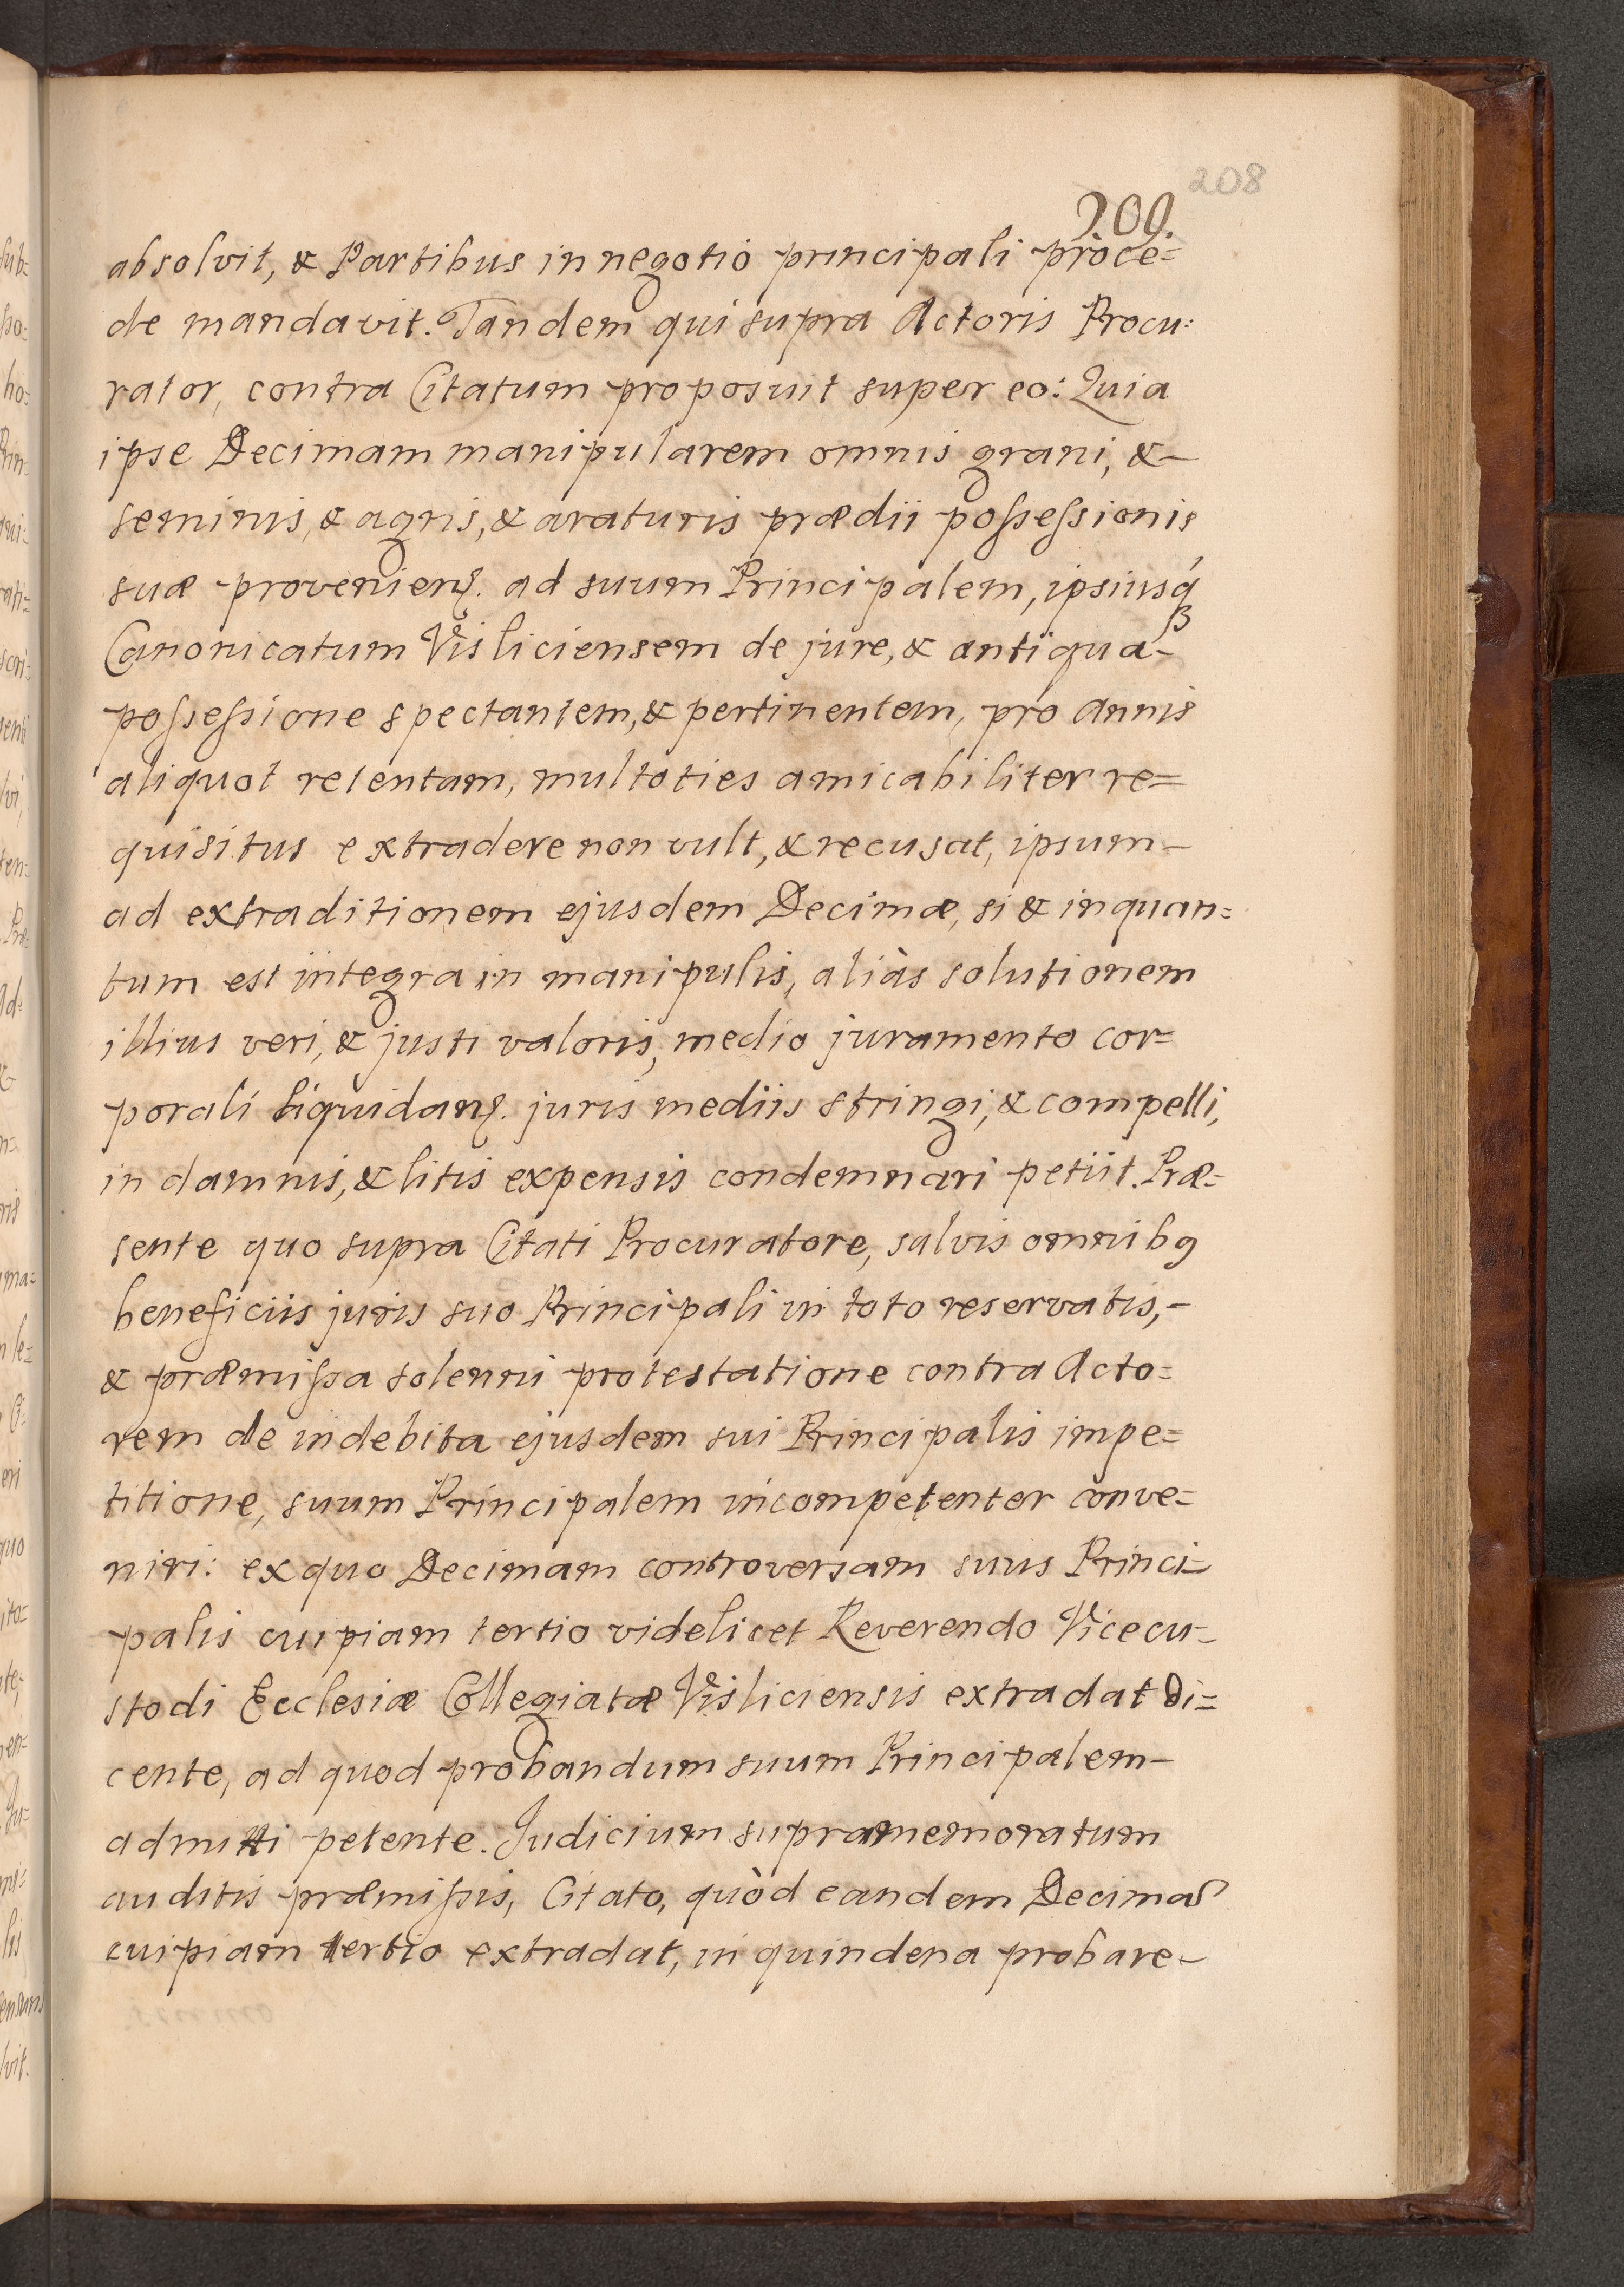 208
209.
absolvit, & Partibus in negotio principali proce=
de mandavit. Tandem qui supra Actoris Procu:
rator, contra Citatum proposuit super eo: Quia
ipse Decimam manipularem omnis grani, &-
seminis, & agris, & araturis prædii poſseſsionis
suæ provenienȝ. ad suum Principalem, ipsiusq́ȝ
Canonicatum Visliciensem de jure, & antiqua-
poſseſsione spectantem, & pertinentem, pro Annis
aliquot retentam, multoties amicabiliter re=
quisitus extradere non vult, & recusat, ipsum-
ad extraditionem ejusdem Decimæ, si & inquan=
tum est integra in manipulis, aliàs solutionem
illius veri, & justi valoris, medio juramento cor=
porali liquidanȝ. juris mediis stringi, & compelli,
in damnis, & litis expensis condemnari petiit. Præ=
sente quo supra Citati Procuratore, salvis omnibꝯ
beneficiis juris suo Principali in toto reservatis,-
& præmiſsa solenni protestatione contra Acto=
rem de indebita ejusdem sui Principalis impe=
titione, suum Principalem incompetenter conve=
niri: ex quo Decimam controversam suus Princi=
palis cuipiam tertio videlicet Reverendo Vicecu-
stodi Ecclesiæ Collegiatæ Visliciensis extradat di=
cente, ad quod probandum suum Principalem-
admitti petente. Judicium supramemoratum
auditis præmiſsis, Citato, quòd eandem Decimam
cuipiam tertio extradat, in quindena probare-